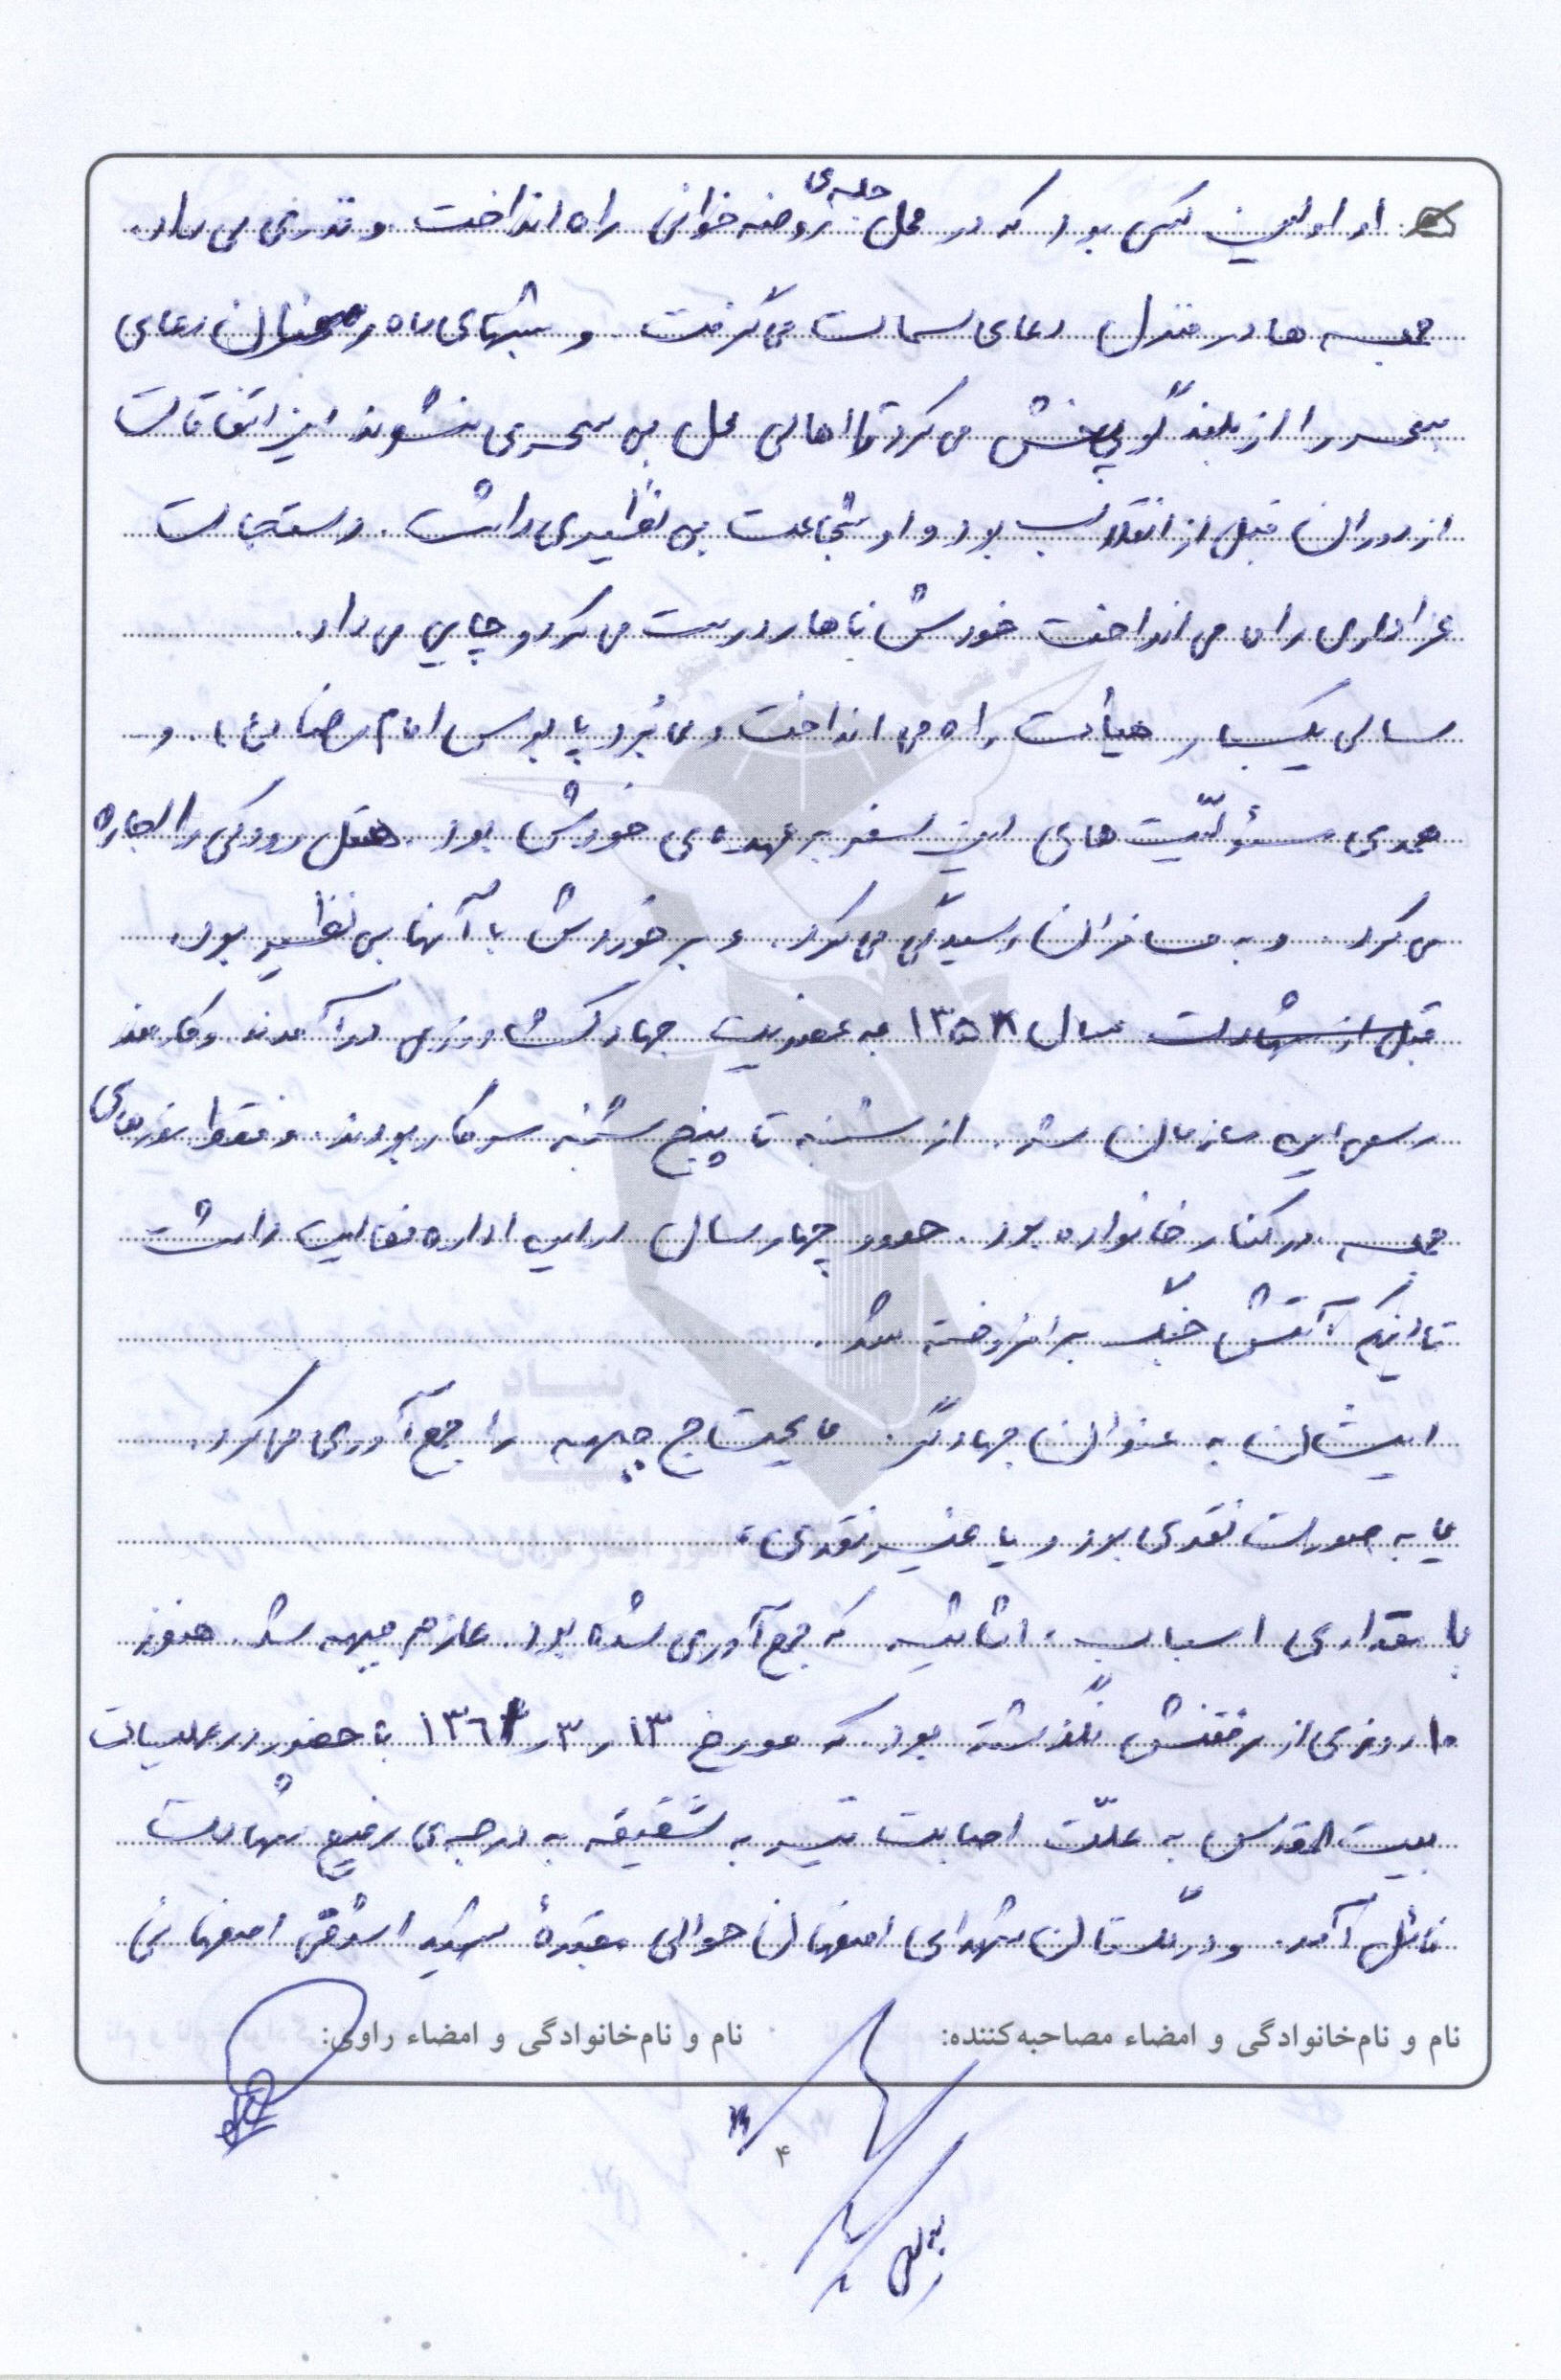 او اولین کسی بود که در محل جلسه‌ی روضه‌خوانی راه انداخت و نذری می‌داد.
جمعه‌ها در منزل دعای سمات می‌گرفت و شبهای ماه رمضان دعای
سحر را از بلندگو پخش می‌کرد تا اهالی محل بی سحری نشوند این اتفاقات
از دوران قبل از انقلاب بود و او شجاعت بی نظیری داشت. دستجات
عزاداری راه می‌انداخت خودش ناهار درست می‌کرد و چایی می‌داد.
سالی یکبار هیأت راه می‌انداخت و می‌برد پابوس امام رضا (ع) و
همه‌ی مسئولیّت‌های این سفر به عهده‌ی خودش بود. هتل رودکی را اجاره
می‌کرد و به مسافران رسیدگی می‌کرد. و برخوردش با آنها بی نظیر بود.
قبل از شهادت سال ۱۳۵۸ به عضویت جهاد کشاورزی درآمدند و کارمند
رسمی این سازمان شد. از شنبه تا پنج شنبه سر کار بودند. و فقط روزهای
جمعه در کنار خانواده بود. حدود چهار سال در این اداره فعالیت داشت
تا اینکه آتش جنگ برافروخته شد.
ایشان به عنوان جهادگر مایحتاج جبهه را جمع‌آوری می‌کرد.
یا به صورت نقدی بود و یا غیر نقدی.
با مقداری اسباب و اثاثیه که جمع‌آوری شده بود عازم جبهه شد. هنوز
۱۰ روزی از رفتنش نگذشته بود که مورخ ۱۳ر۳ر۱۳۶۱ با حضور در عملیات
بیت المقدس به علّت اصابت تیر به شقیقه به درجه‌ی رفیع شهادت
نائل آمد. و در گلستان شهدای اصفهان حوالی مقبرهٔ شهید اشرفی اصفهانی
نام و نام‌خانوادگی و امضاء مصاحبه‌کننده:
نام و نام‌خانوادگی و امضاء راوی:
۴